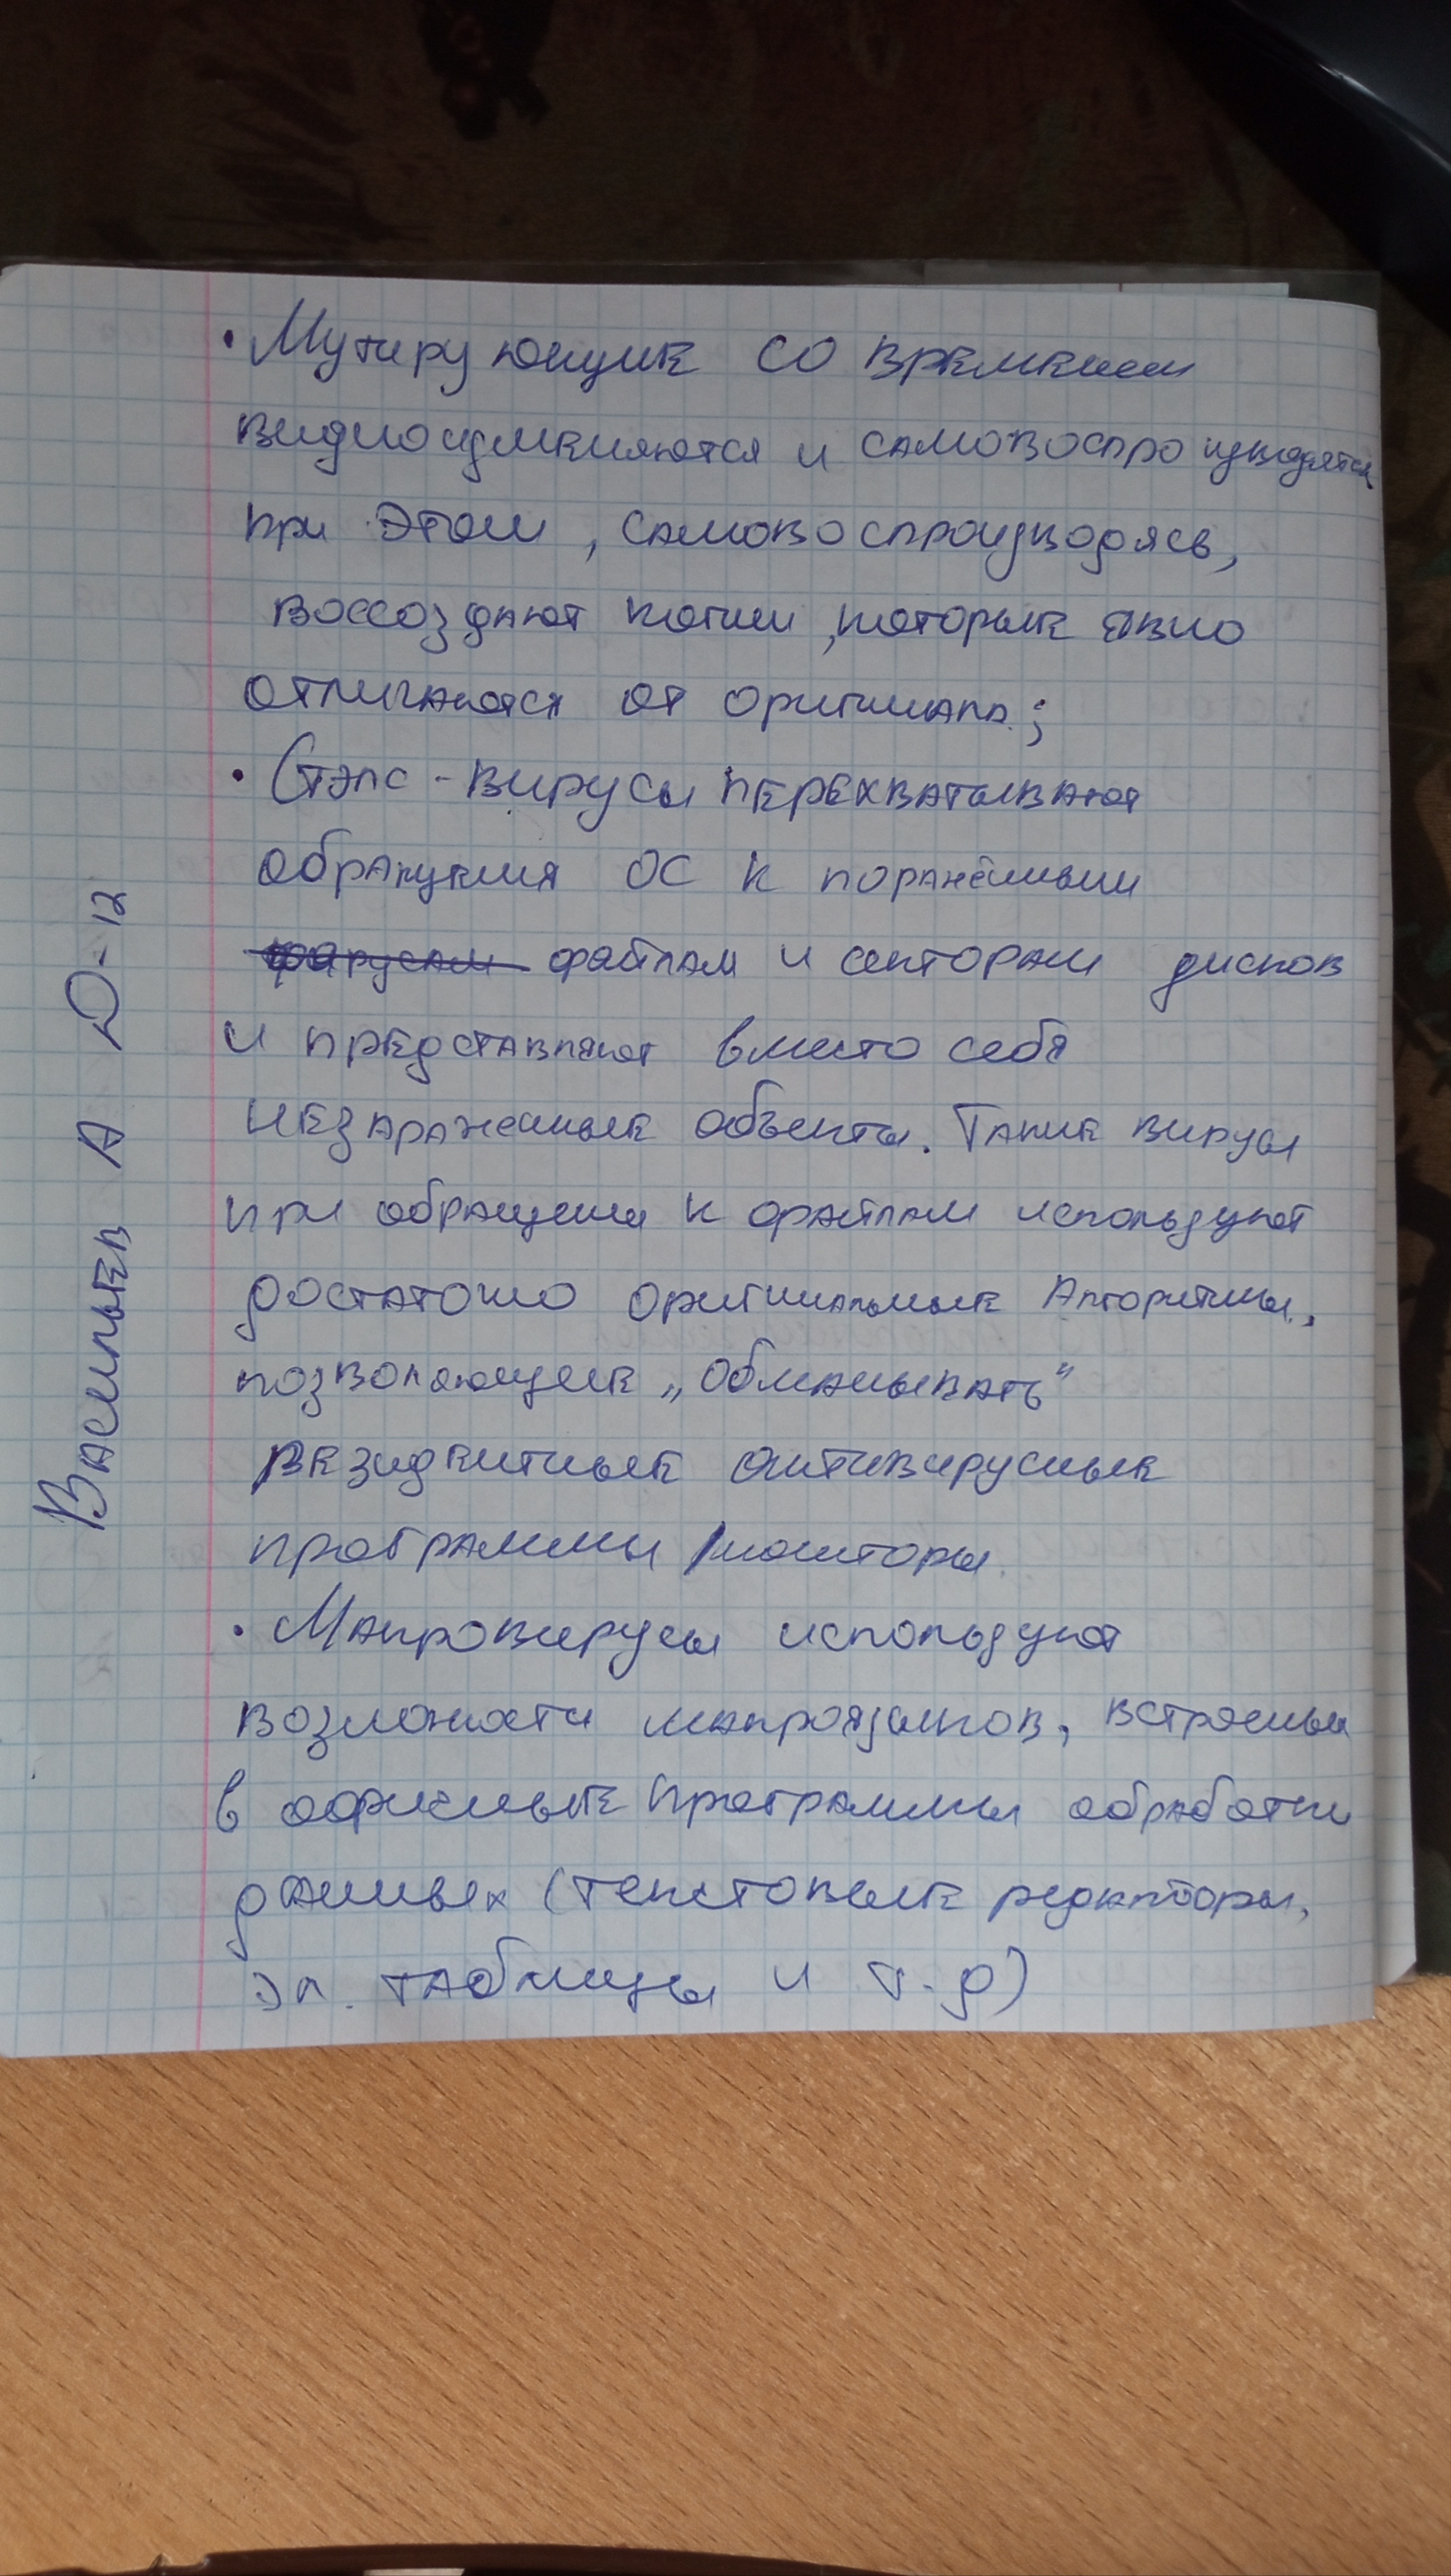 • Мутирующие со временем
видиоизменяются и самовоспроизводятся
при этом, самовоспроизводясь,
воссоздают копии, которые явно
отличаются от оригинала;
• Стэлс-вирусы перехватывают
обращения ОС к поражённым
файлам и секторам дисков
и представляют вместо себя
незараженные объекты. Такие вирусы
при обращении к файлам используют
достаточно оригинальные Алгоритмы,
позволяющие „обманывать“
резидентные антивирусные
программы /мониторы.
• Макровирусы используют
возможности макроязыков, встроенных
в офисные программы обработки
данных (текстовые редакторы,
эл. таблицы и т.д)
Васильев А Д-12